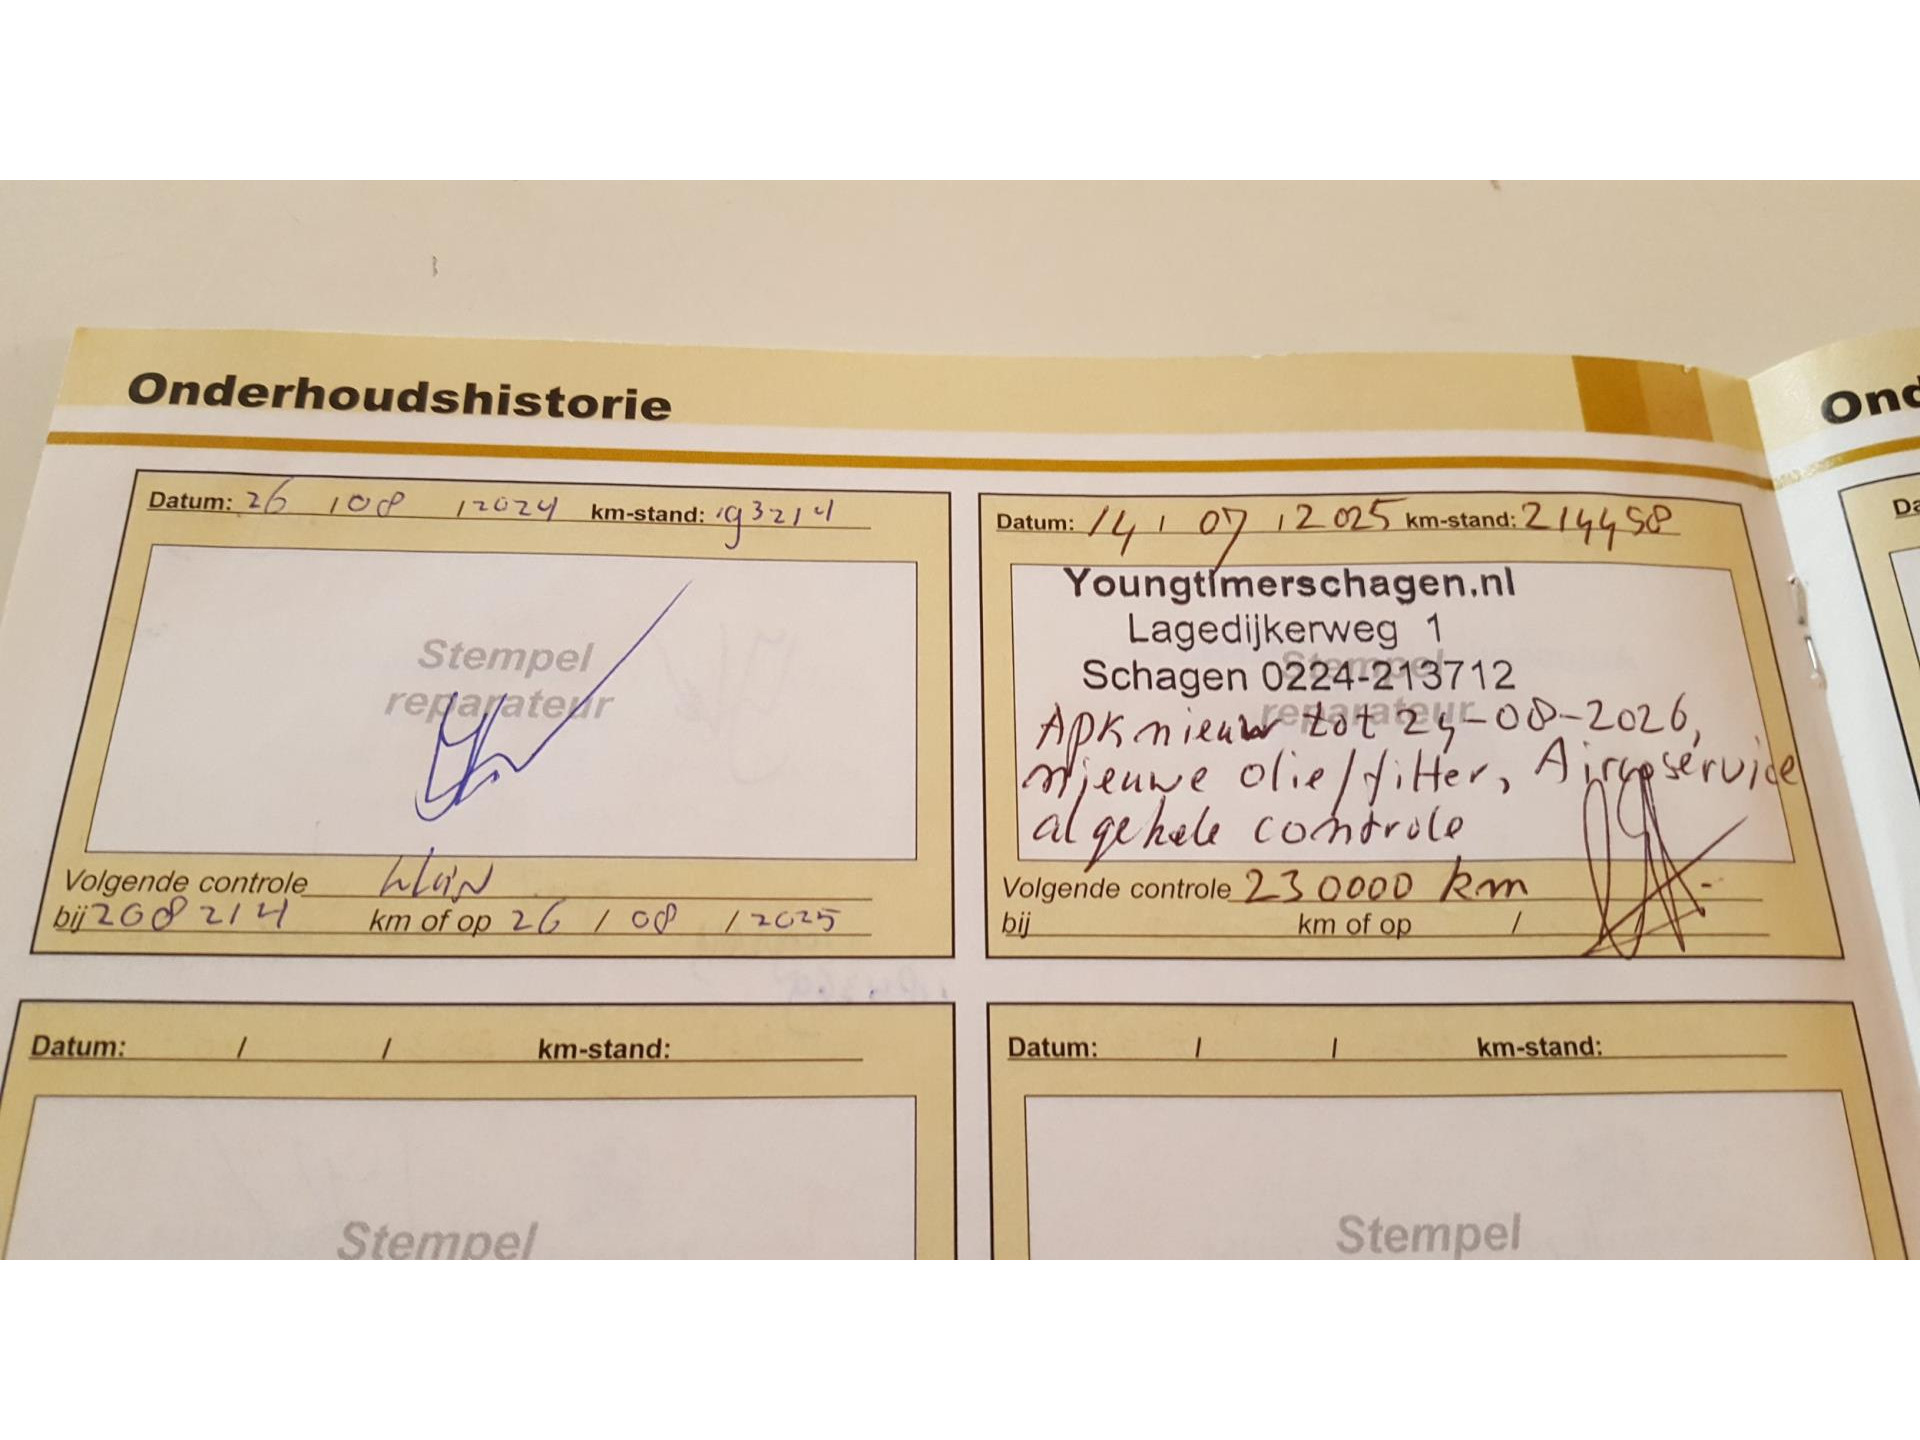 Onderhoudshistorie
Datum: 26 / 08 / 2024 km-stand: 193214
Stempel
reparateur
Volgende controle klein
bij 208214 km of op 26 / 08 / 2025
Datum: 14 / 07 / 2025 km-stand: 214458
Youngtimerschagen.nl
Lagedijkerweg 1
Schagen 0224-213712
Stempel
reparateur
APK nieuw tot 24-08-2026,
nieuwe olie/filter, Aircoservice
algehele controle
Volgende controle 230000 km
bij km of op /
Datum: / / km-stand:
Stempel
Datum: / / km-stand:
Stempel
Ond
Da